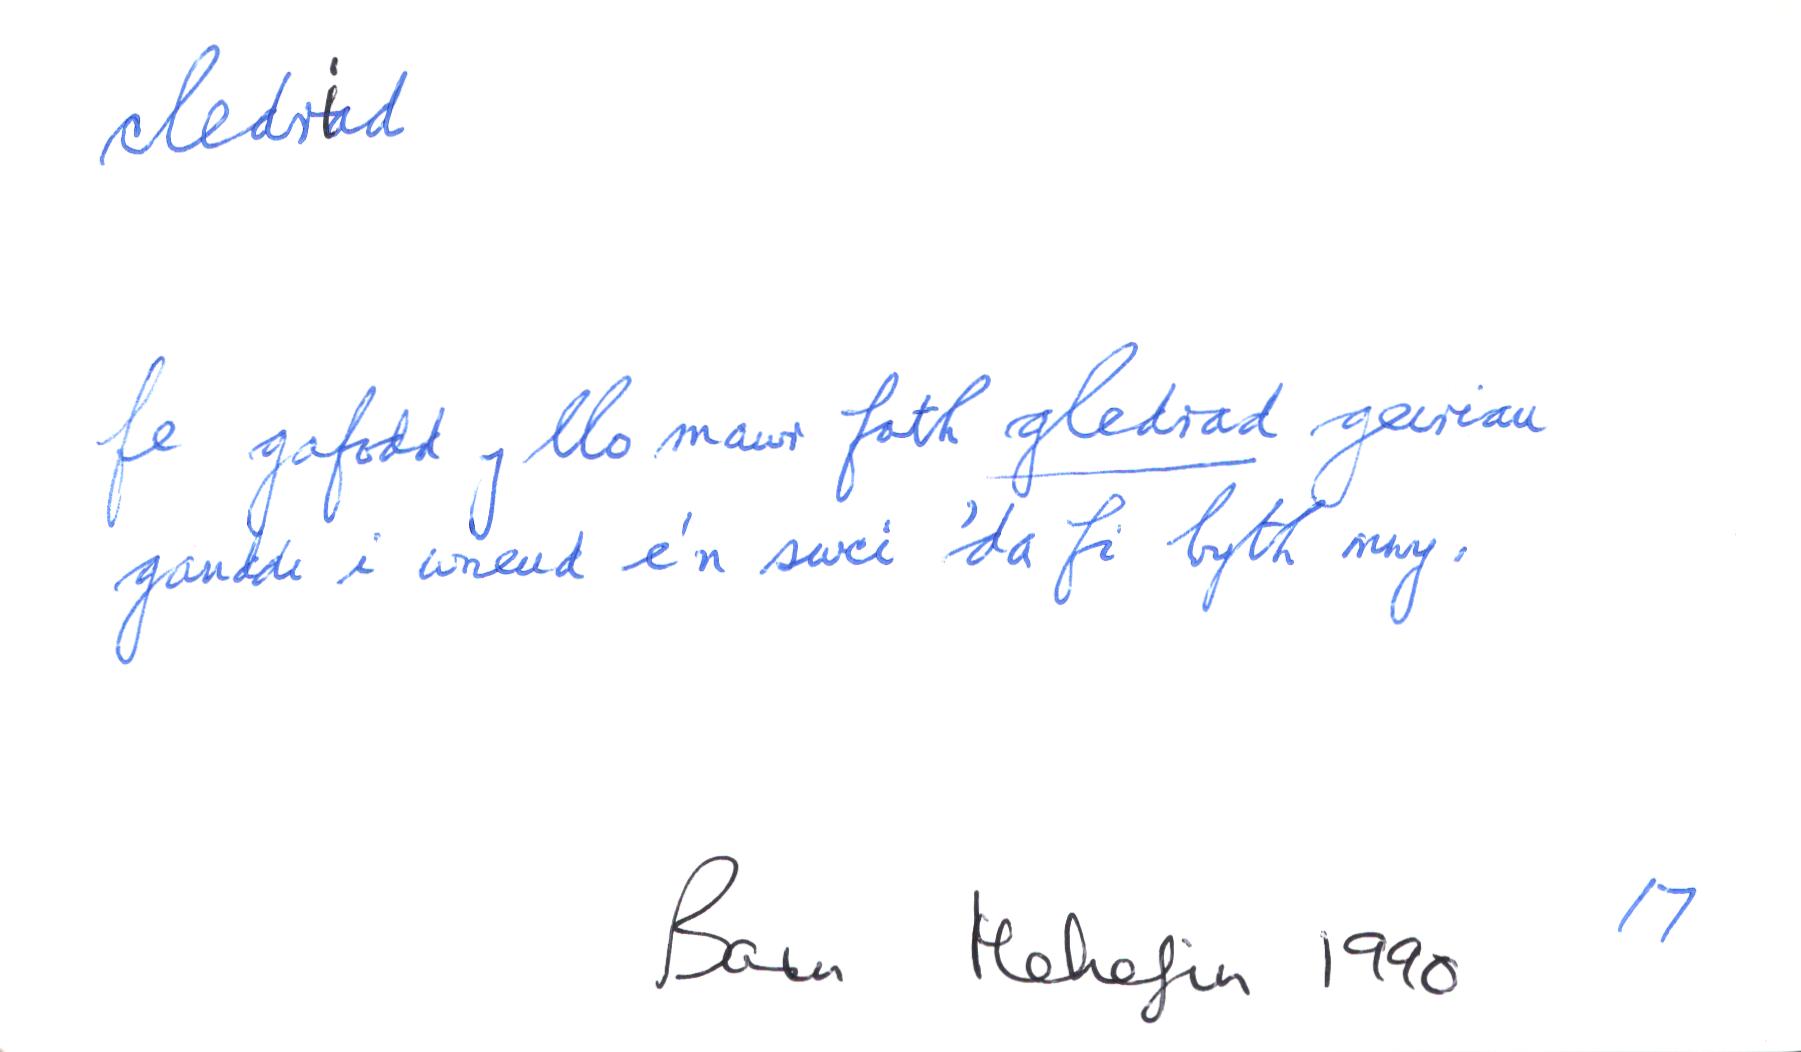 cledriad
fe gafodd y llo mawr fath gledrad geiriau
ganddi i wneud e'n swci 'da fi byth mwy.
Barn Mehefin 1990
17